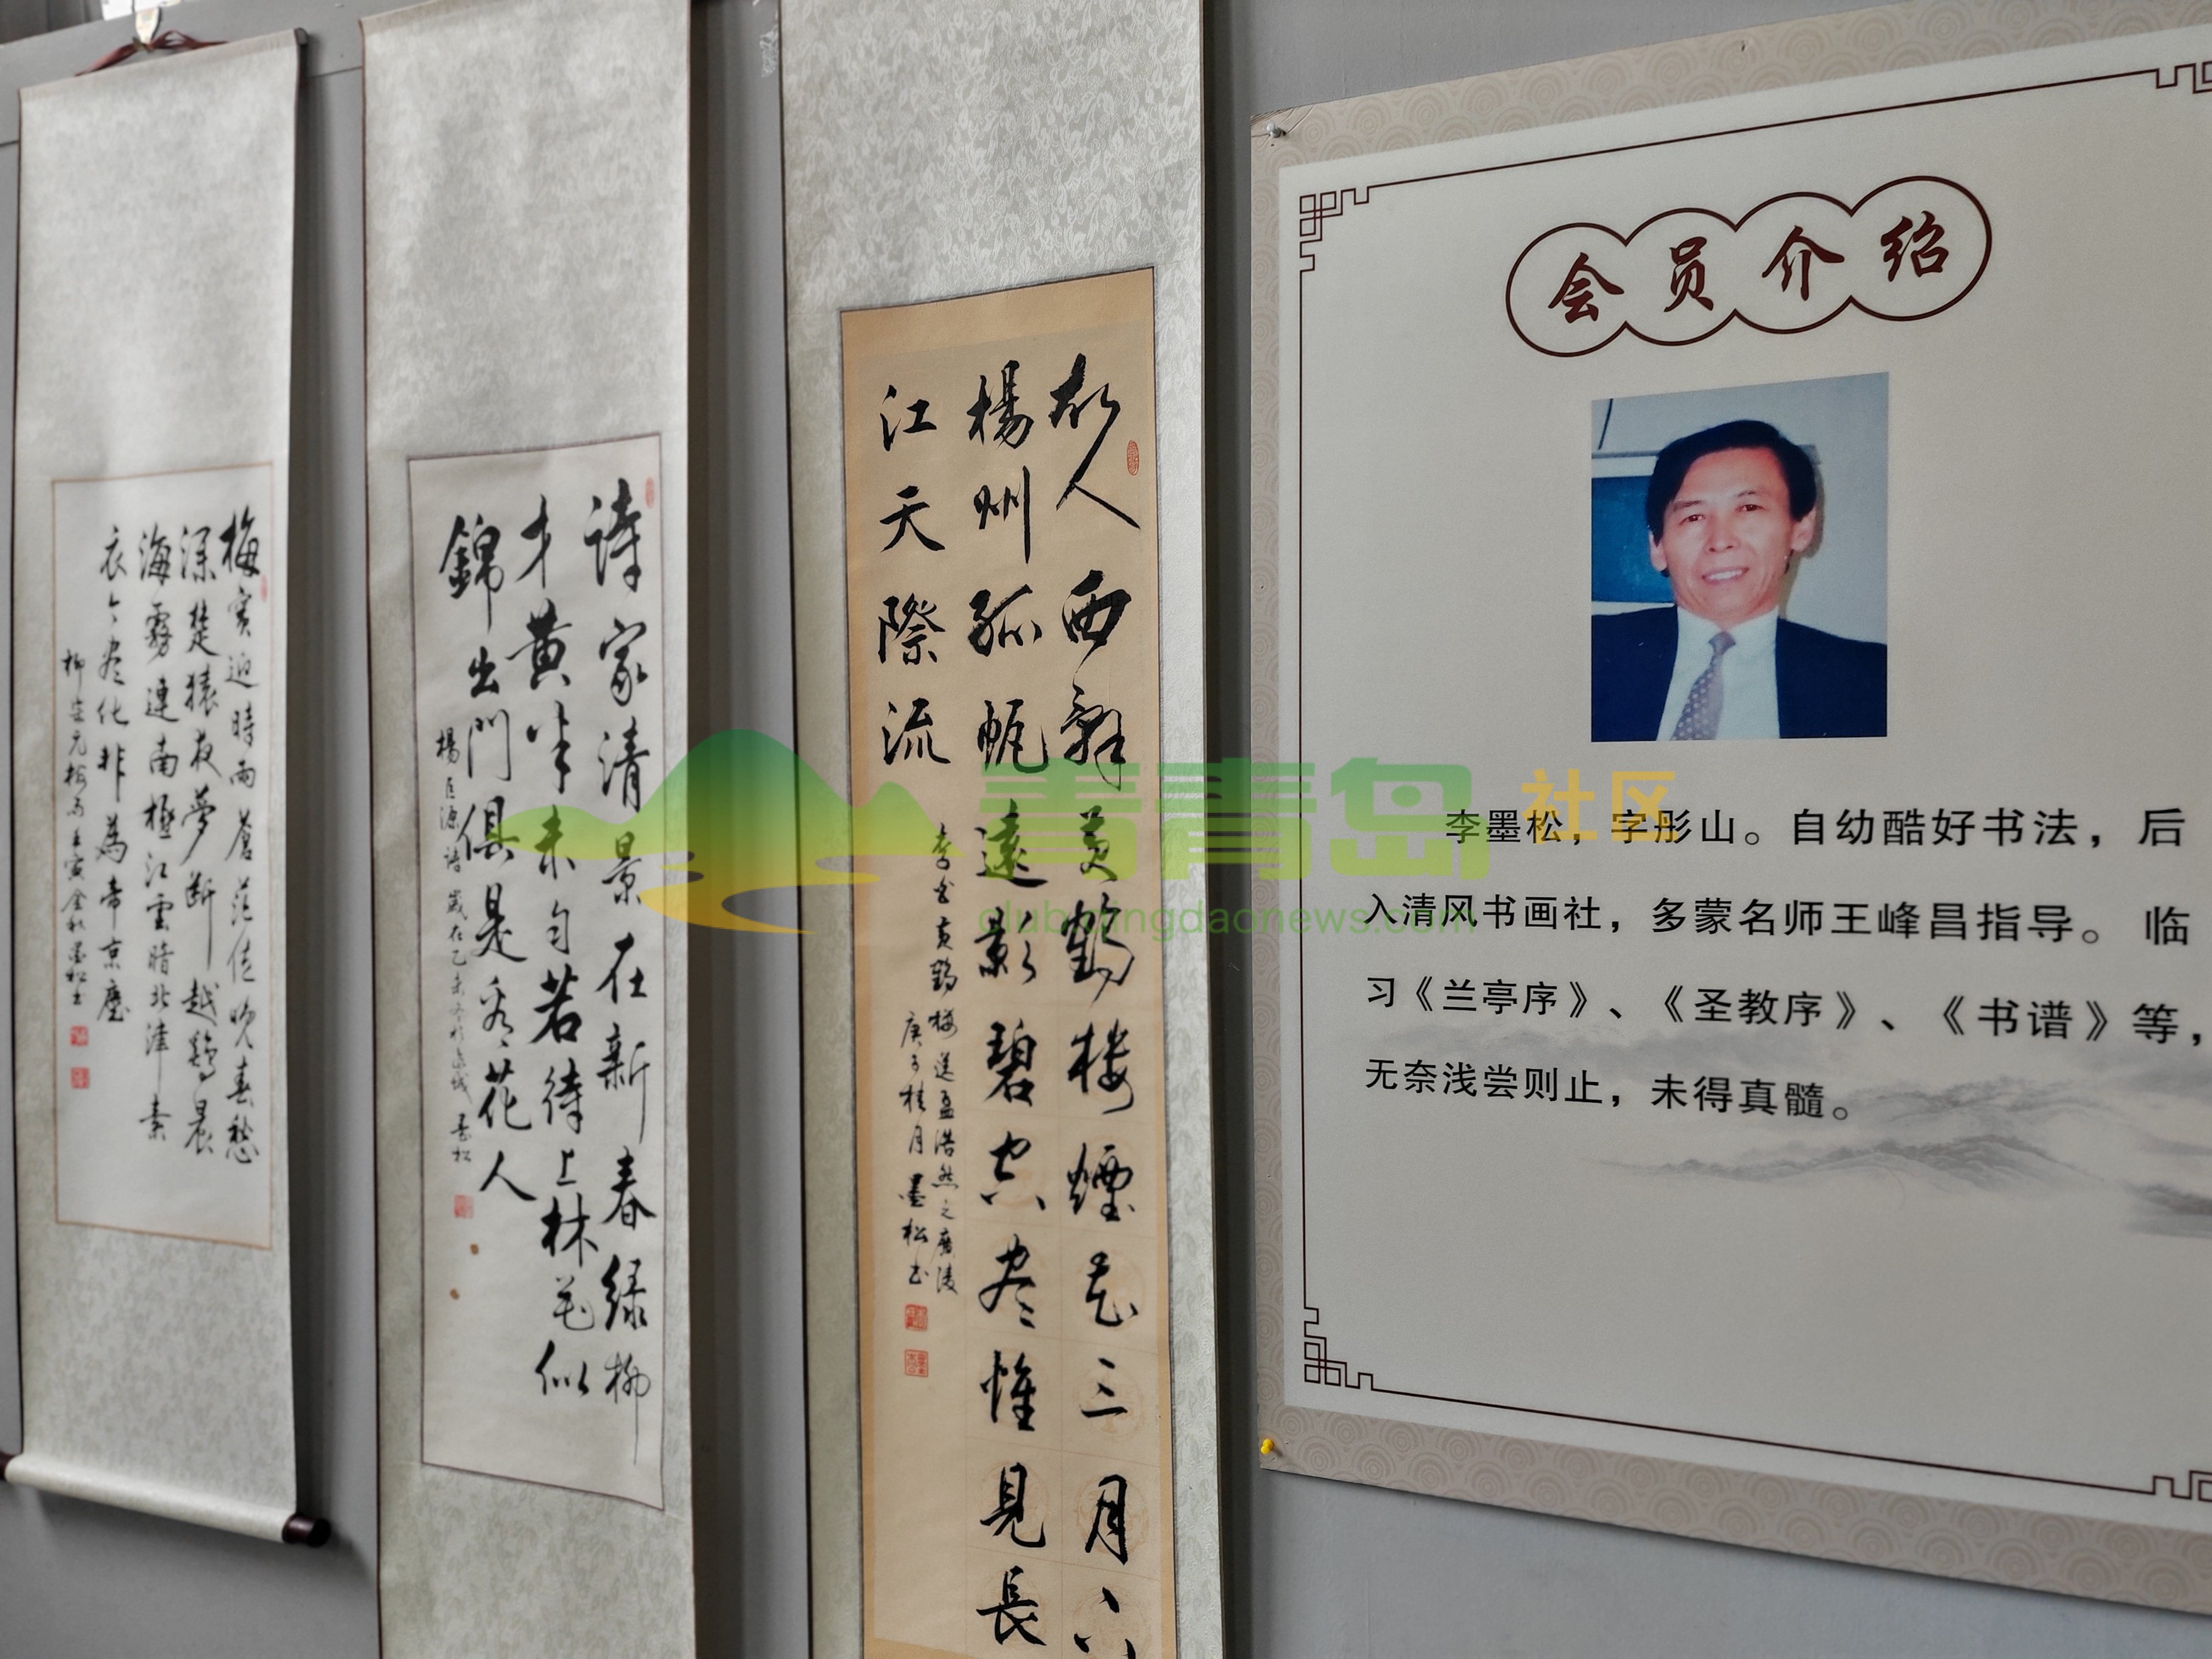 会员介绍
李墨松，字彤山。自幼酷好书法，后
入清风书画社，多蒙名师王峰昌指导。临
习《兰亭序》、《圣教序》、《书谱》等，
无奈浅尝则止，未得真髓。
故人西辞黄鹤楼煙花三月下
楊州孤帆遠影碧空尽惟見長
江天際流
李白黄鹤楼送孟浩然之廣陵
庚子桂月墨松书
詩家清景在新春绿柳
才黄半未匀若待上林花似
錦出門俱是看花人
楊巨源詩 歲在乙未
墨松
梅實迎時雨蒼茫值晚春愁
深楚猿夜夢断越鷄晨
海霧連南極江雲暗北津素
衣今尽化非為帝京塵
柳宗元梅雨壬寅金秋墨松书
青青岛社区
club.qingdaonews.com